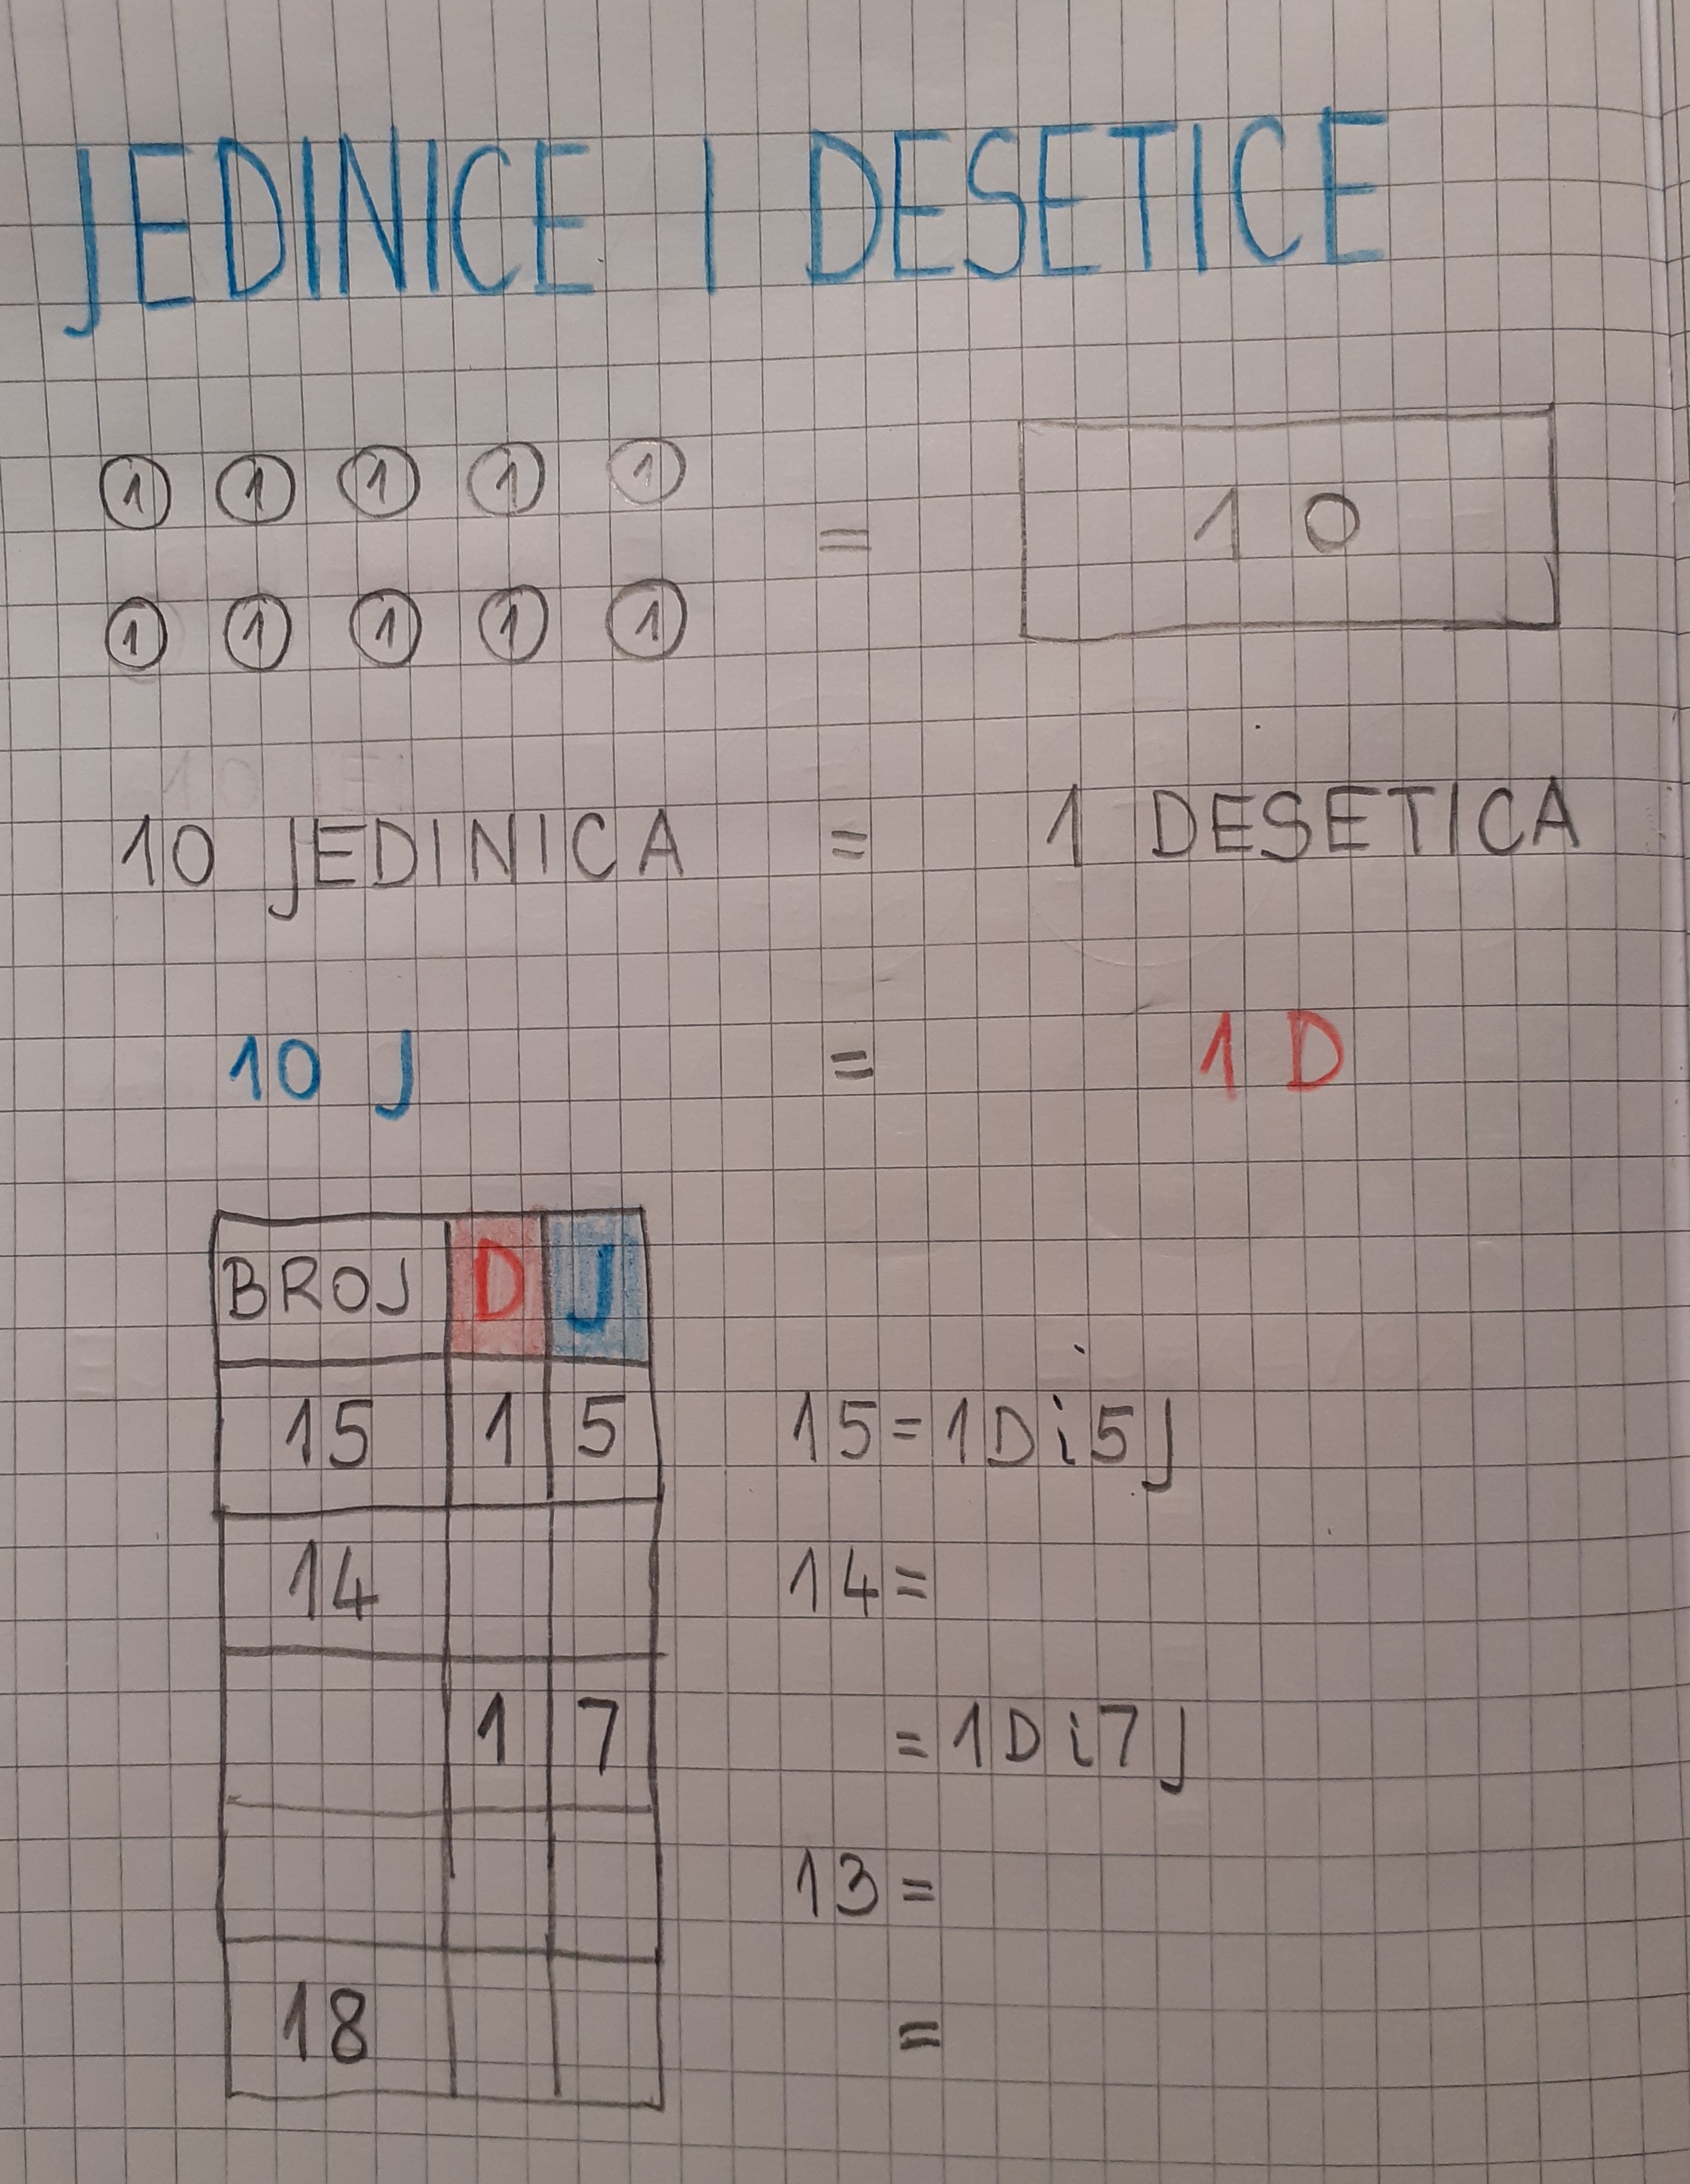 JEDINICE I DESETICE
1 1 1 1 1
= 10
1 1 1 1 1
10 JEDINICA = 1 DESETICA
10 J = 1 D
BROJ D J
15 1 5 15=1Di5J
14 14=
1 7 =1Di7J
13=
18 =